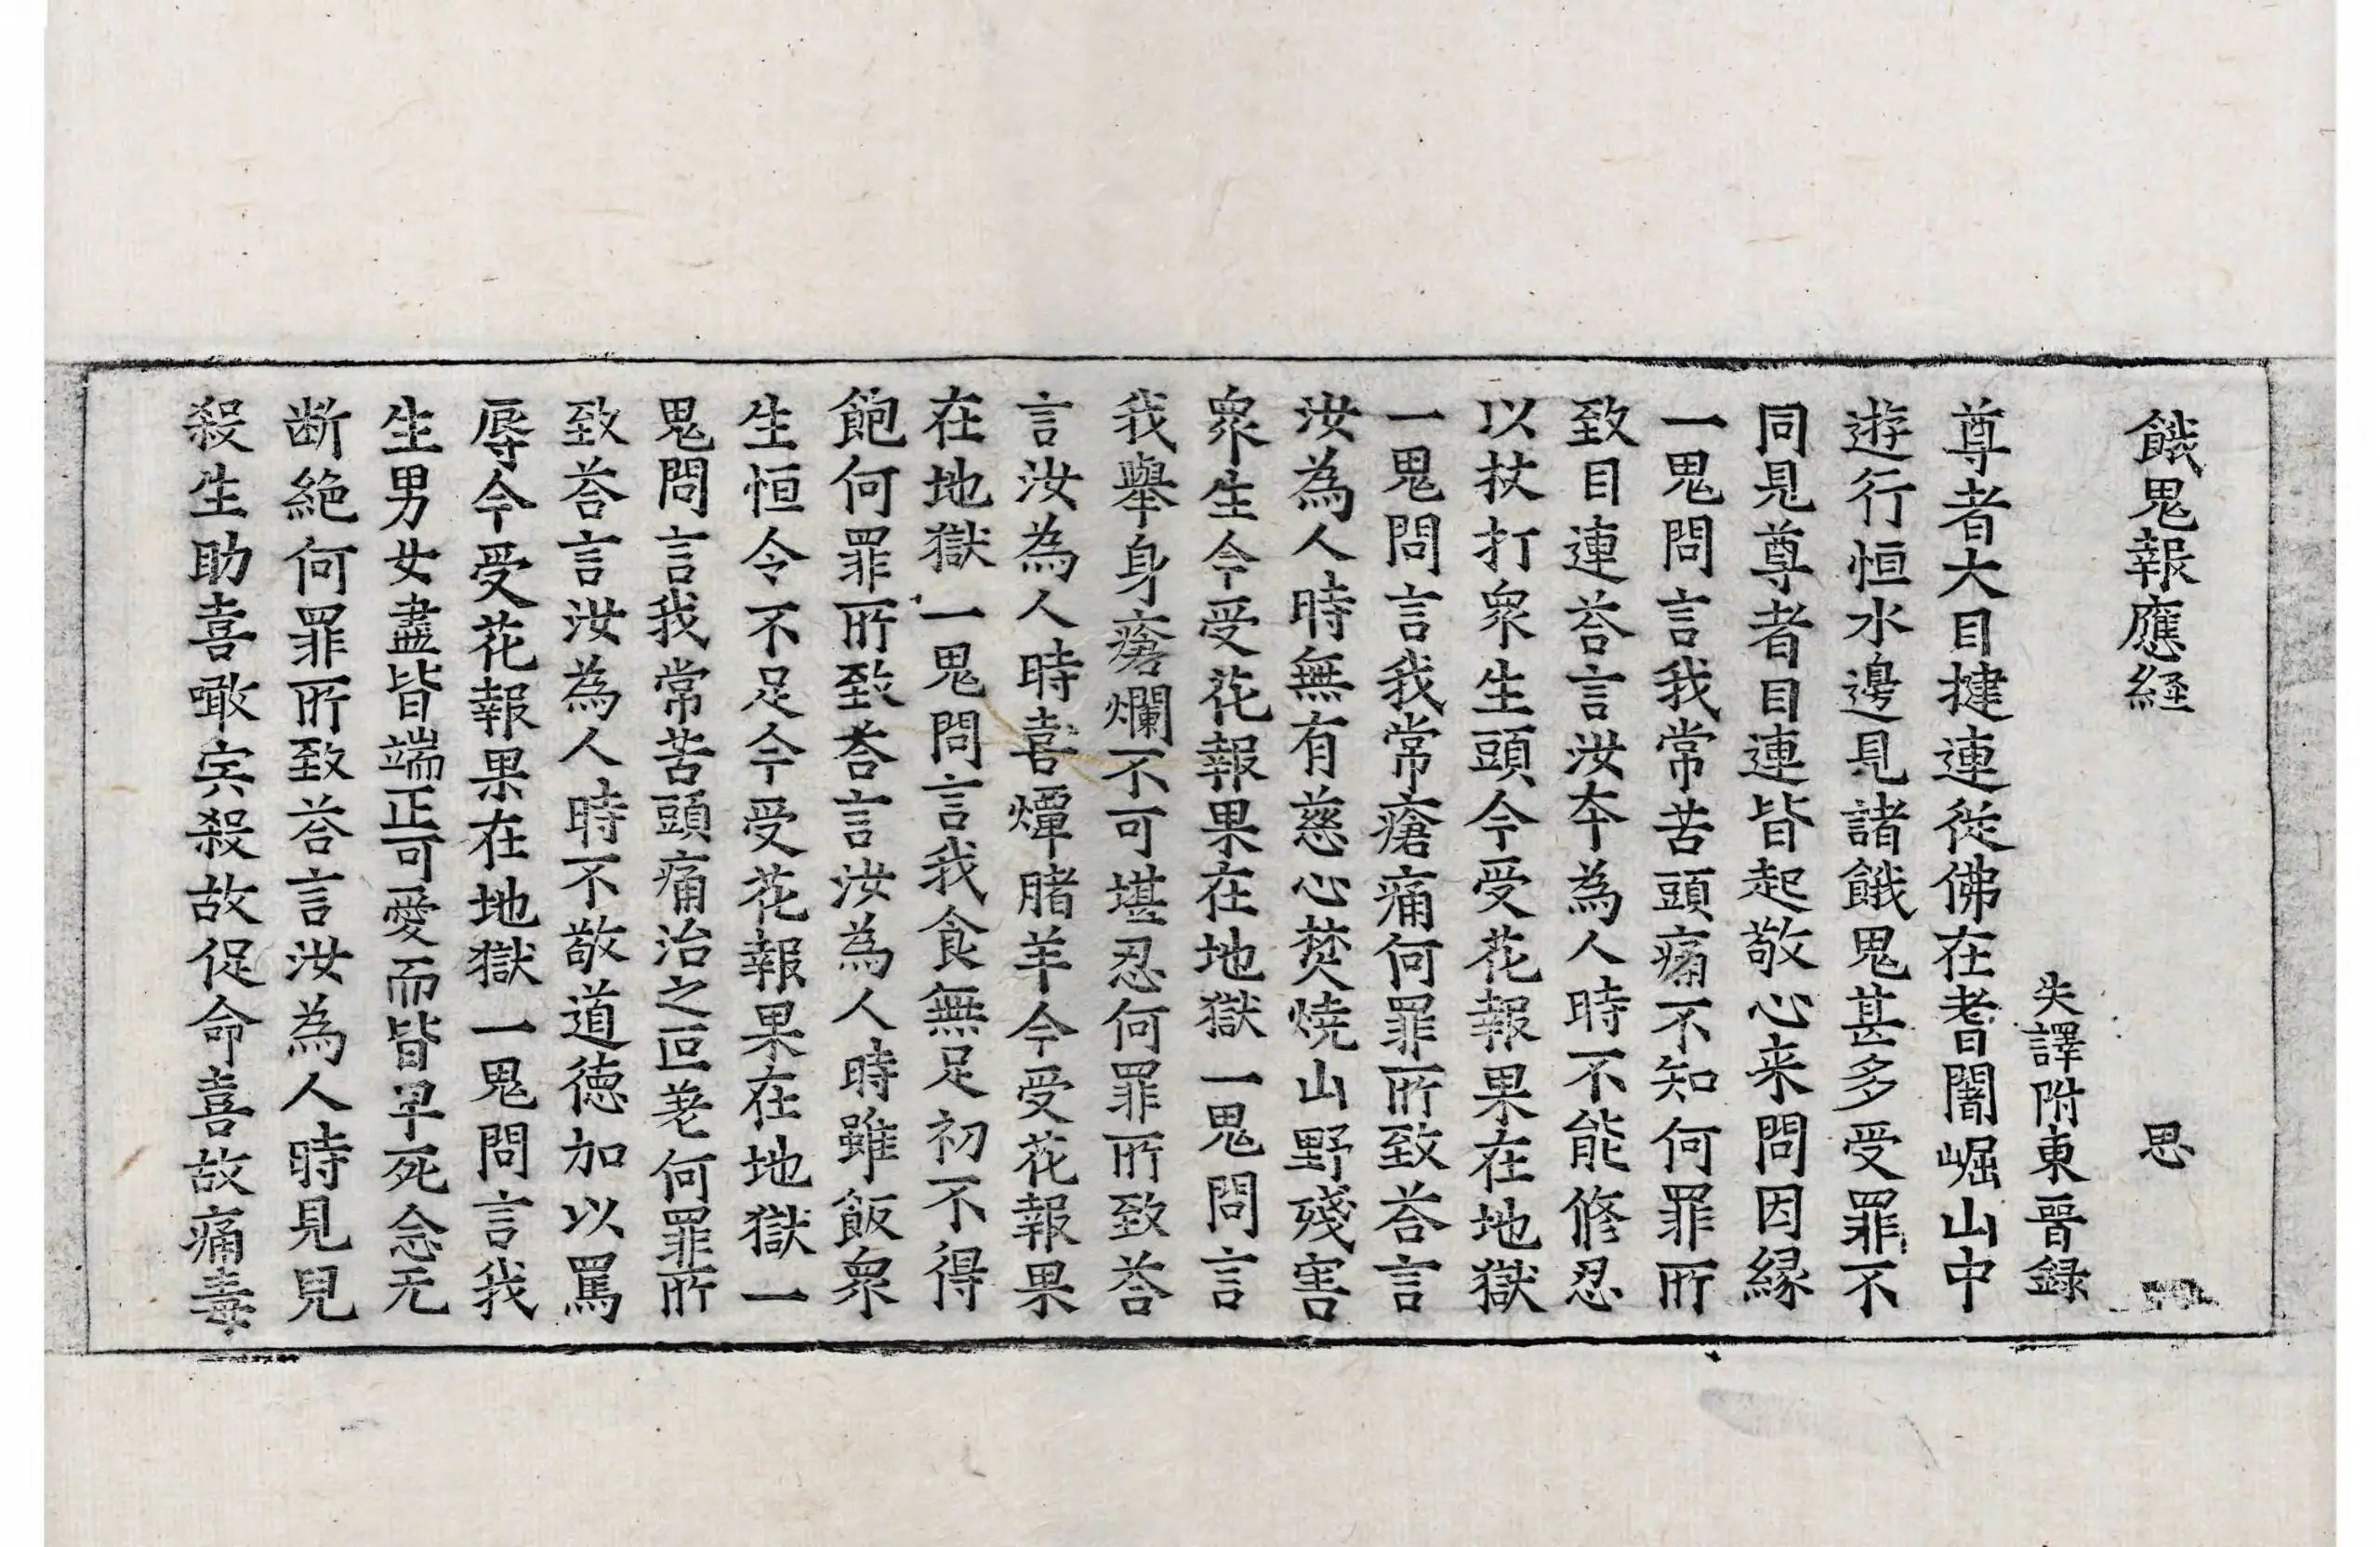 餓鬼報應経 思
失譯附東晉録
尊者大目揵連從佛在耆闍崛山中
遊行恒水邊見諸餓鬼甚多受罪不
同見尊者目連皆起敬心来問因縁
一鬼問言我常苦頭痛不知何罪所
致目連荅言汝夲為人時不能修忍
以杖打衆生頭今受花報果在地獄
一鬼問言我常瘡痛何罪所致荅言
汝為人時無有慈心焚燒山野殘害
衆生今受花報果在地獄一鬼問言
我舉身瘡爛不可堪忍何罪所致荅
言汝為人時喜燂腤羊今受花報果
在地獄一鬼問言我食無足初不得
飽何罪所致荅言汝為人時雖飯衆
生恒令不足今受花報果在地獄一
鬼問言我常苦頭痛治之叵差何罪所
致荅言汝為人時不敬道德加以罵
辱今受花報果在地獄一鬼問言我
生男女盡皆端正可愛而皆早死念无
断絶何罪所致荅言汝為人時見兒
殺生助喜噉宍殺故促命喜故痛毒